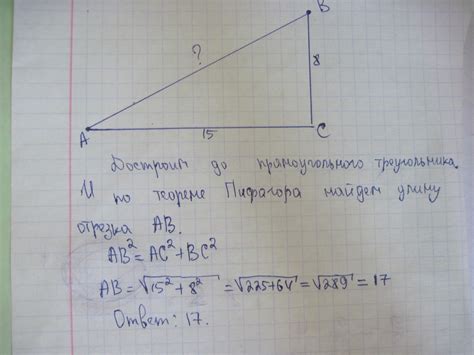 B
?
8
A
15
C
Достроим до прямоугольного треугольника.
И по теореме Пифагора найдем длину
отрезка AB.
AB²=AC²+BC²
AB=√15²+8²=√225+64=√289=17
Ответ: 17.